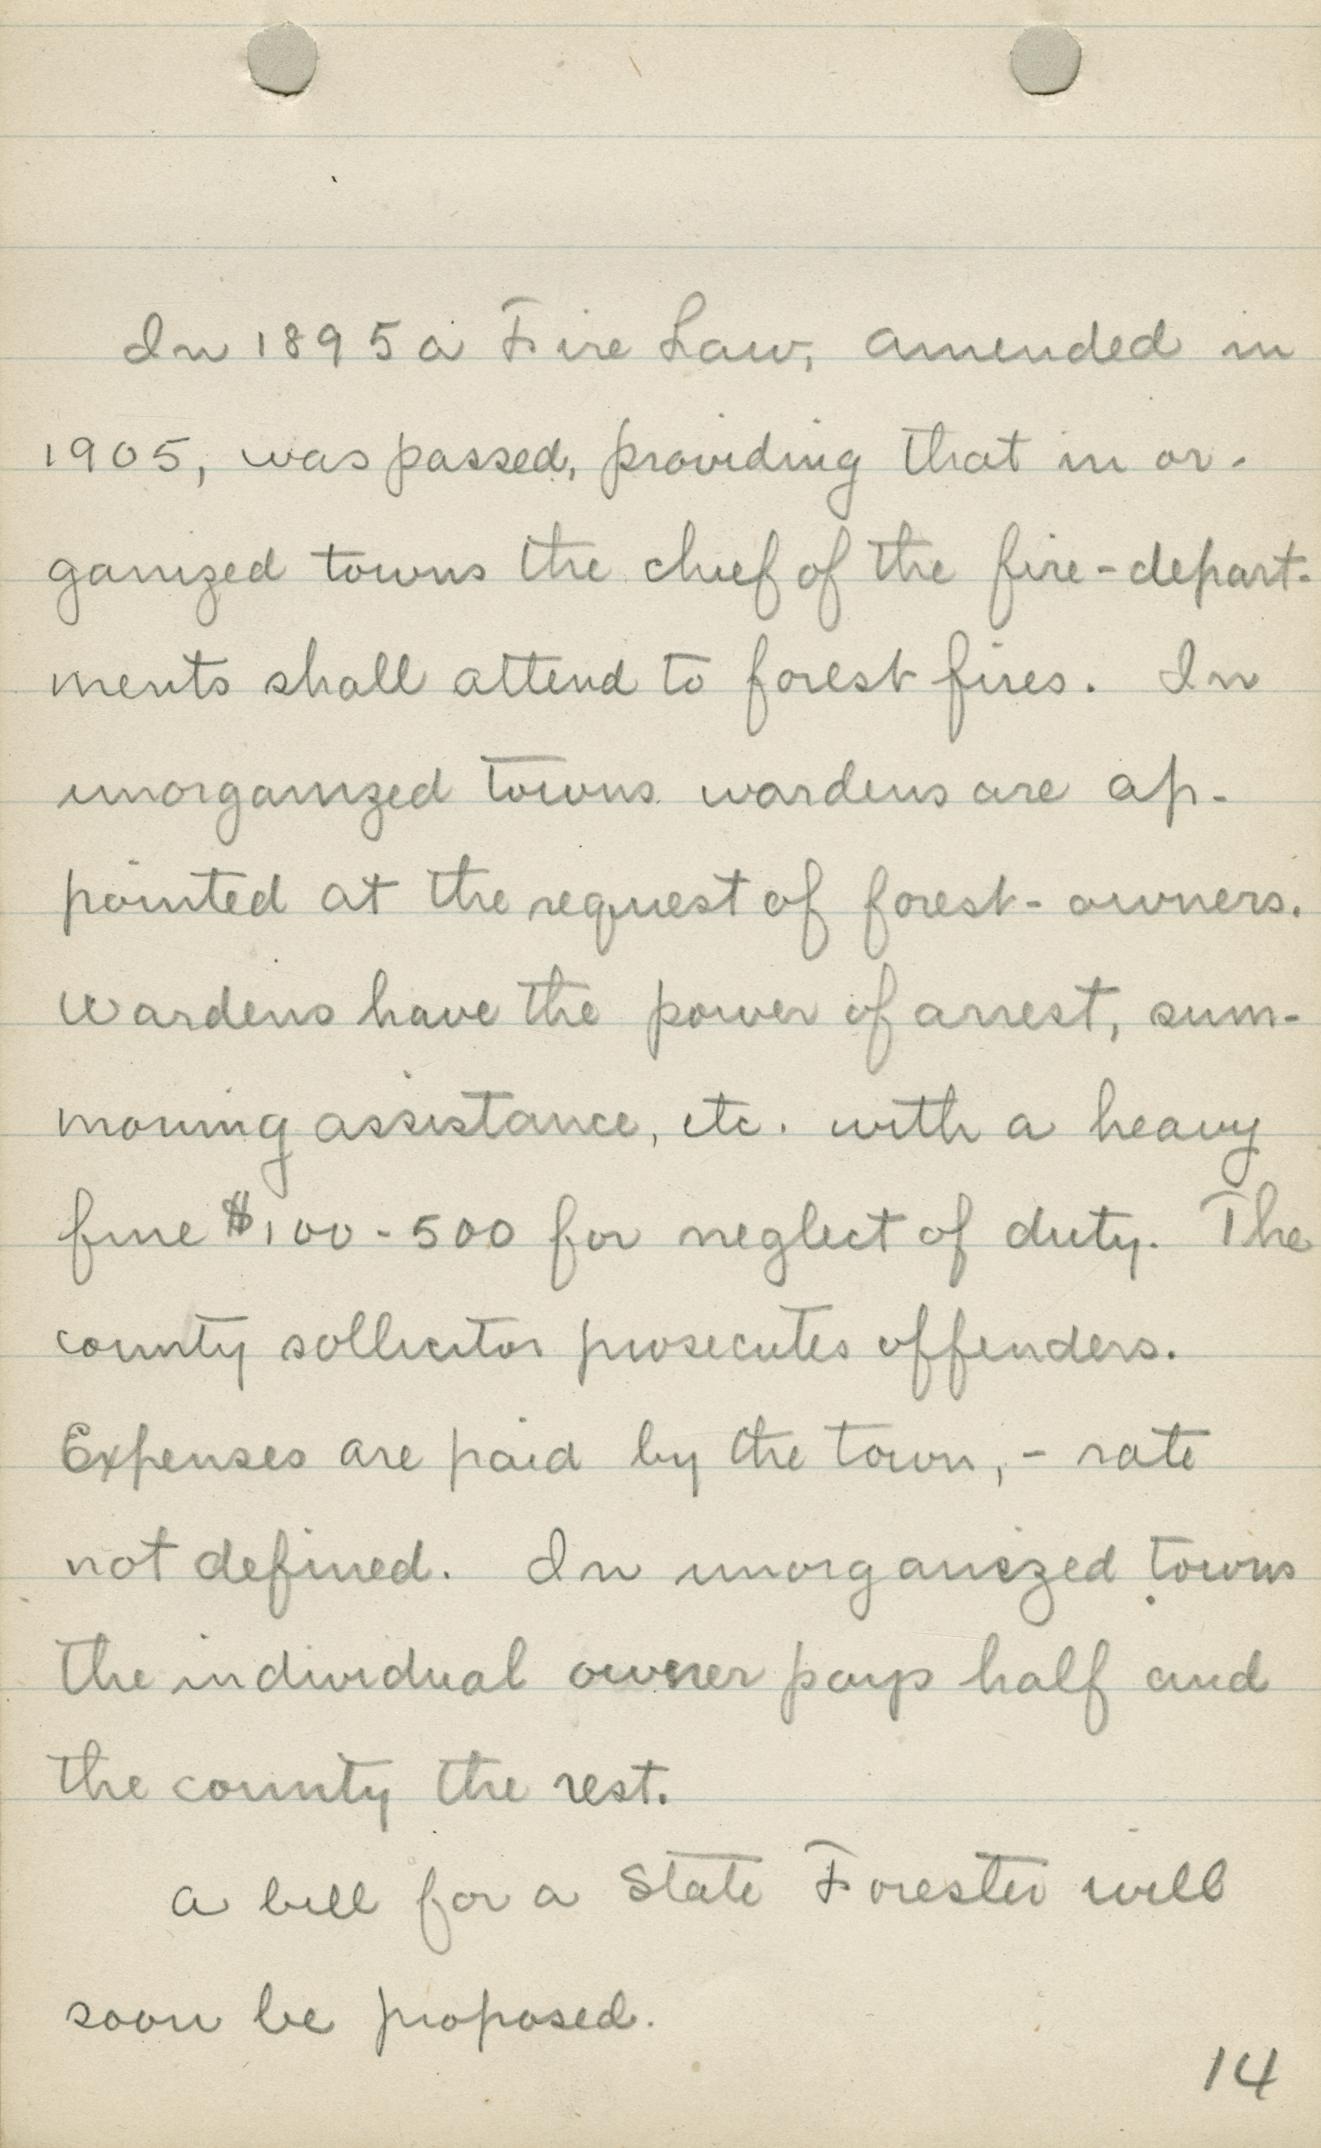 In 1895 a Fire Law, amended in
1905, was passed, providing that in or-
ganized towns the chief of the fire-depart-
ments shall attend to forest fires. In
unorganized towns wardens are ap-
pointed at the request of forest-owners.
Wardens have the power of arrest, sum-
moning assistance, etc. with a heavy
fine $100-500 for neglect of duty. The
county sollicitor prosecutes offenders.
Expenses are paid by the town, - rate
not defined. In unorganized towns
the individual owner pays half and
the county the rest.
A bill for a State Forester will
soon be proposed.
14